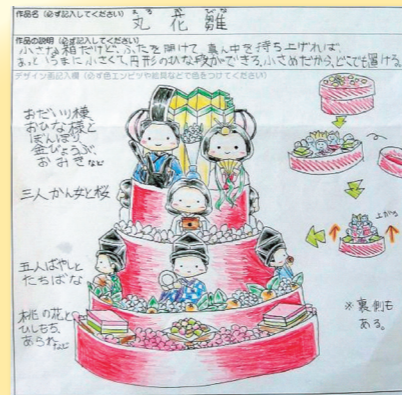 作品名(必ず記入してください)
まる か びな
丸 花 雛
作品の説明(必ず記入してください)
小さな箱だけど、ふたを開けて、真ん中を持ち上げれば、
あっというまに小さくて、円形のひな段ができる。小さめだから、どこでも置ける。
デザイン表記入欄(必ず色エンピツや絵具などで色をつけてください)
おだいり様、
おひな様と
ぼんぼり
金びょうぶ、
おみきなど
三人かん女と桜
五人ばやしと
たちばな
桃の花と
ひしもち、
あられなど
上がる
※裏側も
ある。